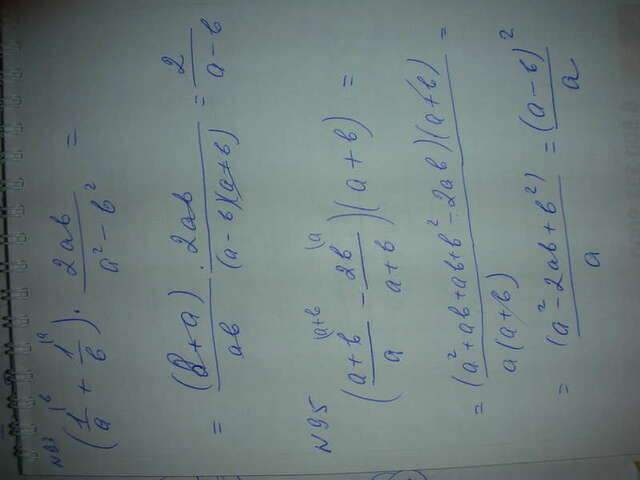 (1/a |b + 1/b |a) · 2ab/(a² - b²) =
= (b+a)/ab · 2ab/((a-b)(a+b)) = 2/(a-b)
N95
((a+b)/a (a+b - 2b/(a+b) (a)(a+b) =
= (a²+ab+ab+b²-2ab)(a+b)/(a(a+b)) =
= (a²-2ab+b²)/a = (a-b)²/a